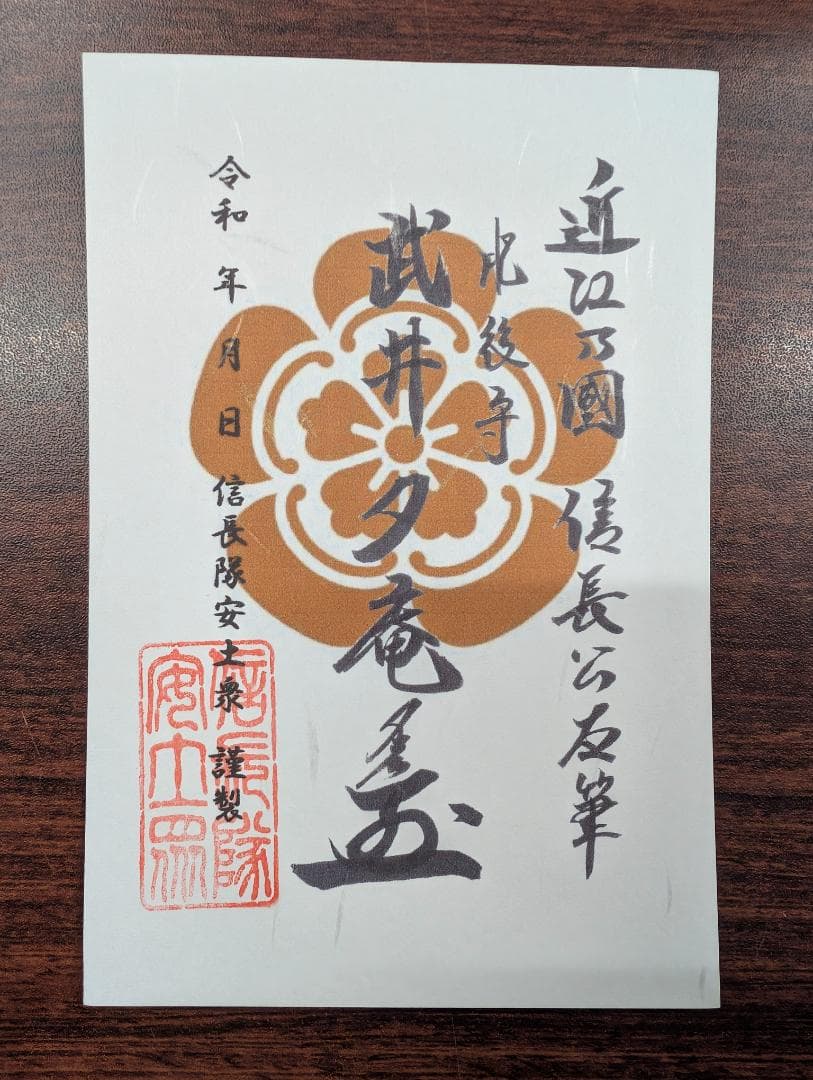 近江乃國 信長公右筆
肥後守
武井夕庵
令和 年 月 日 信長隊安土衆 謹製
信長隊
安土衆